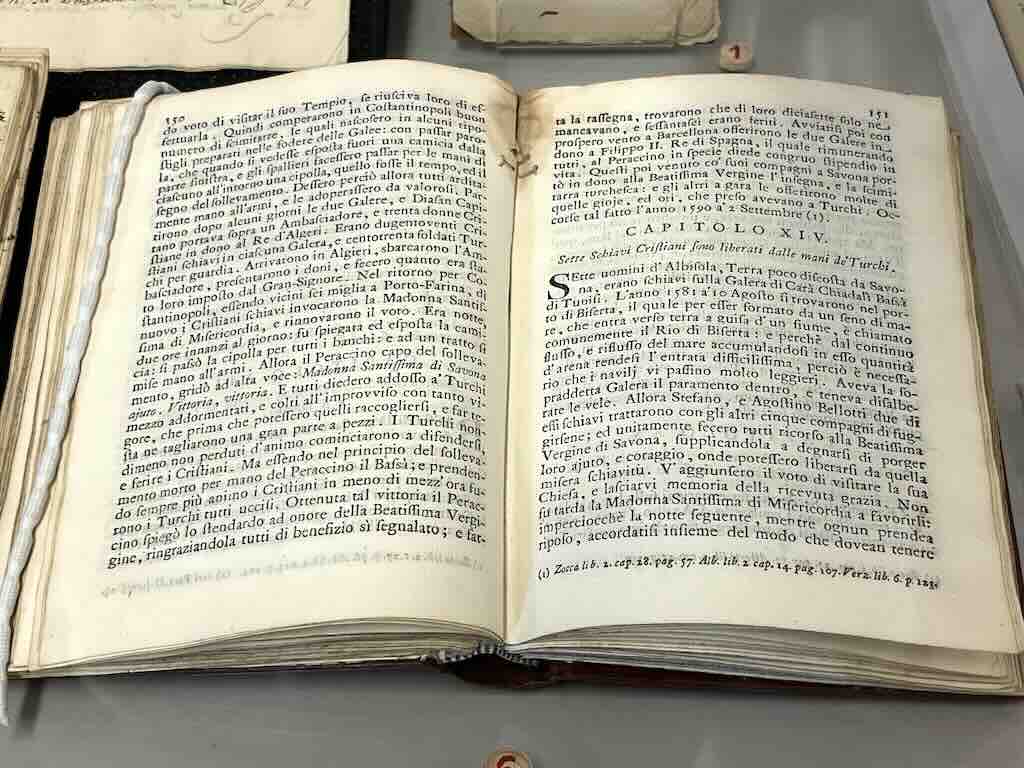 150
do voto di visitar il suo Tempio, se riusciva loro di ef-
fettuarla. Quindi comperarono in Costantinopoli buon
numero di scimitre, le quali nascosero in alcuni ripo-
stigli preparati nelle fodere delle Galee: con passar paro-
la, che quando si vedesse esposta fuori una camicia dalla
parte sinistra, e gli spallieri facessero passar per le mani di
ciascuno all'intorno una cipolla, quello fosse il tempo, ed il
segno del sollevamento. Dessero perciò allora tutti ardita-
mente mano all'armi, e le adoperassero da valorosi. Par-
tirono dopo alcuni giorni le due Galere, e Diasan Capi-
tano portava sopra un Ambasciadore, e trenta donne Cri-
stiane in dono al Re d'Algeri. Erano dugentoventi Cri-
stiani schiavi in ciascuna Galera, e centotrenta soldati Tur-
chi per guardia. Arrivarono in Algieri, sbarcarono l'Am-
basciadore, presentarono i doni, e fecero quanto era sta-
to loro imposto dal Gran-Signore. Nel ritorno per Co-
stantinopoli, essendo vicini sei miglia a Porto-Farina, di
nuovo i Cristiani schiavi invocarono la Madonna Santis-
sima di Misericordia, e rinnovarono il voto. Era notte,
due ore innanzi al giorno: fu spiegata ed esposta la cami-
cia: si passò la cipolla per tutti i banchi: e ad un tratto si
mise mano all'armi. Allora il Peraccino capo del solleva-
mento, gridò ad alta voce: Madonna Santissima di Savona
ajuto. Vittoria, vittoria. E tutti diedero addosso a' Turchi
mezzo addormentati, e colti all'improvviso con tanto vi-
gore, che prima che potessero quelli raccogliersi, e far te-
sta ne tagliarono una gran parte a pezzi. I Turchi non-
dimeno non perduti d'animo cominciarono a difendersi,
e ferire i Cristiani. Ma essendo nel principio del solleva-
mento morto per mano del Peraccino il Bassà; e prenden-
do sempre più animo i Cristiani in meno di mezz'ora fu-
rono i Turchi tutti uccisi. Ottenuta tal vittoria il Perac-
cino spiegò lo stendardo ad onore della Beatissima Vergi-
gine, ringraziandola tutti di benefizio sì segnalato; e fat-
151
ta la rassegna, trovarono che di loro diciasette solo ne
mancavano, e sessantasei erano feriti. Avviatisi poi con
prospero vento a Barcellona offerirono le due Galere in
dono a Filippo II. Re di Spagna, il quale rimunerando
tutti, al Peraccino in specie diede congruo stipendio in
vita. Questi poi venuto co' suoi compagni a Savona por-
tò in dono alla Beatissima Vergine l'insegna, e la scimi-
tarra turchesca: e gli altri a gara le offerirono molte di
quelle gioje, ed ori, che preso avevano a' Turchi. Oc-
corse tal fatto l'anno 1590 a' 2 Settembre (1).
CAPITOLO XIV.
Sette Schiavi Cristiani sono liberati dalle mani de' Turchi.
SEtte uomini d'Albisola, Terra poco discosta da Savo-
na, erano schiavi sulla Galera di Carà Chiadalì Bassà
di Tunisi. L'anno 1581 a' 10 Agosto si trovarono nel por-
to di Biserta, il quale per esser formato da un seno di ma-
re, che entra verso terra a guisa d'un fiume, è chiamato
comunemente il Rio di Biserta: e perchè dal continuo
flusso, e riflusso del mare accumulandosi in esso quantità
d'arena rendesi l'entrata difficilissima, perciò è necessa-
rio che i navilj vi passino molto leggieri. Aveva la so-
praddetta Galera il paramento dentro, e teneva disalbe-
rate le vele. Allora Stefano, e Agostino Bellotti due di
essi schiavi trattarono con gli altri cinque compagni di fug-
girsene; ed unitamente fecero tutti ricorso alla Beatissima
Vergine di Savona, supplicandola a degnarsi di porger
loro ajuto, e coraggio, onde potessero liberarsi da quella
misera schiavitù. V'aggiunsero il voto di visitare la sua
Chiesa, e lasciarvi memoria della ricevuta grazia. Non
fu tarda la Madonna Santissima di Misericordia a favorirli:
imperciocchè la notte seguente, mentre ognun prendea
riposo, accordatisi insieme del modo che doveano tenere
(1) Zocca lib. 2. cap. 28. pag. 57. Alb. lib. 2 cap. 14. pag. 107. Verz. lib. 6. p. 123.
1